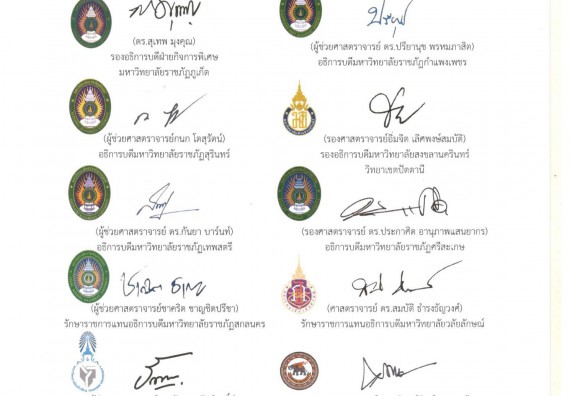 (ดร.สุเทพ มุงคุณ)
รองอธิการบดีฝ่ายกิจการพิเศษ
มหาวิทยาลัยราชภัฏภูเก็ต
(ผู้ช่วยศาสตราจารย์ ดร.ปรียานุช พรหมภาสิต)
อธิการบดีมหาวิทยาลัยราชภัฏกำแพงเพชร
(ผู้ช่วยศาสตราจารย์กนก โตสุรัตน์)
อธิการบดีมหาวิทยาลัยราชภัฏสุรินทร์
(รองศาสตราจารย์อิ่มจิต เลิศพงษ์สมบัติ)
รองอธิการบดีมหาวิทยาลัยสงขลานครินทร์
วิทยาเขตปัตตานี
(ผู้ช่วยศาสตราจารย์ ดร.กันยา บาร์นท์)
อธิการบดีมหาวิทยาลัยราชภัฏเทพสตรี
(รองศาสตราจารย์ ดร.ประกาศิต อานุภาพแสนยากร)
อธิการบดีมหาวิทยาลัยราชภัฏศรีสะเกษ
(ผู้ช่วยศาสตราจารย์ชาคริต ชาญชิตปรีชา)
รักษาราชการแทนอธิการบดีมหาวิทยาลัยราชภัฏสกลนคร
(ศาสตราจารย์ ดร.สมบัติ ธำรงธัญวงศ์)
รักษาราชการแทนอธิการบดีมหาวิทยาลัยวลัยลักษณ์